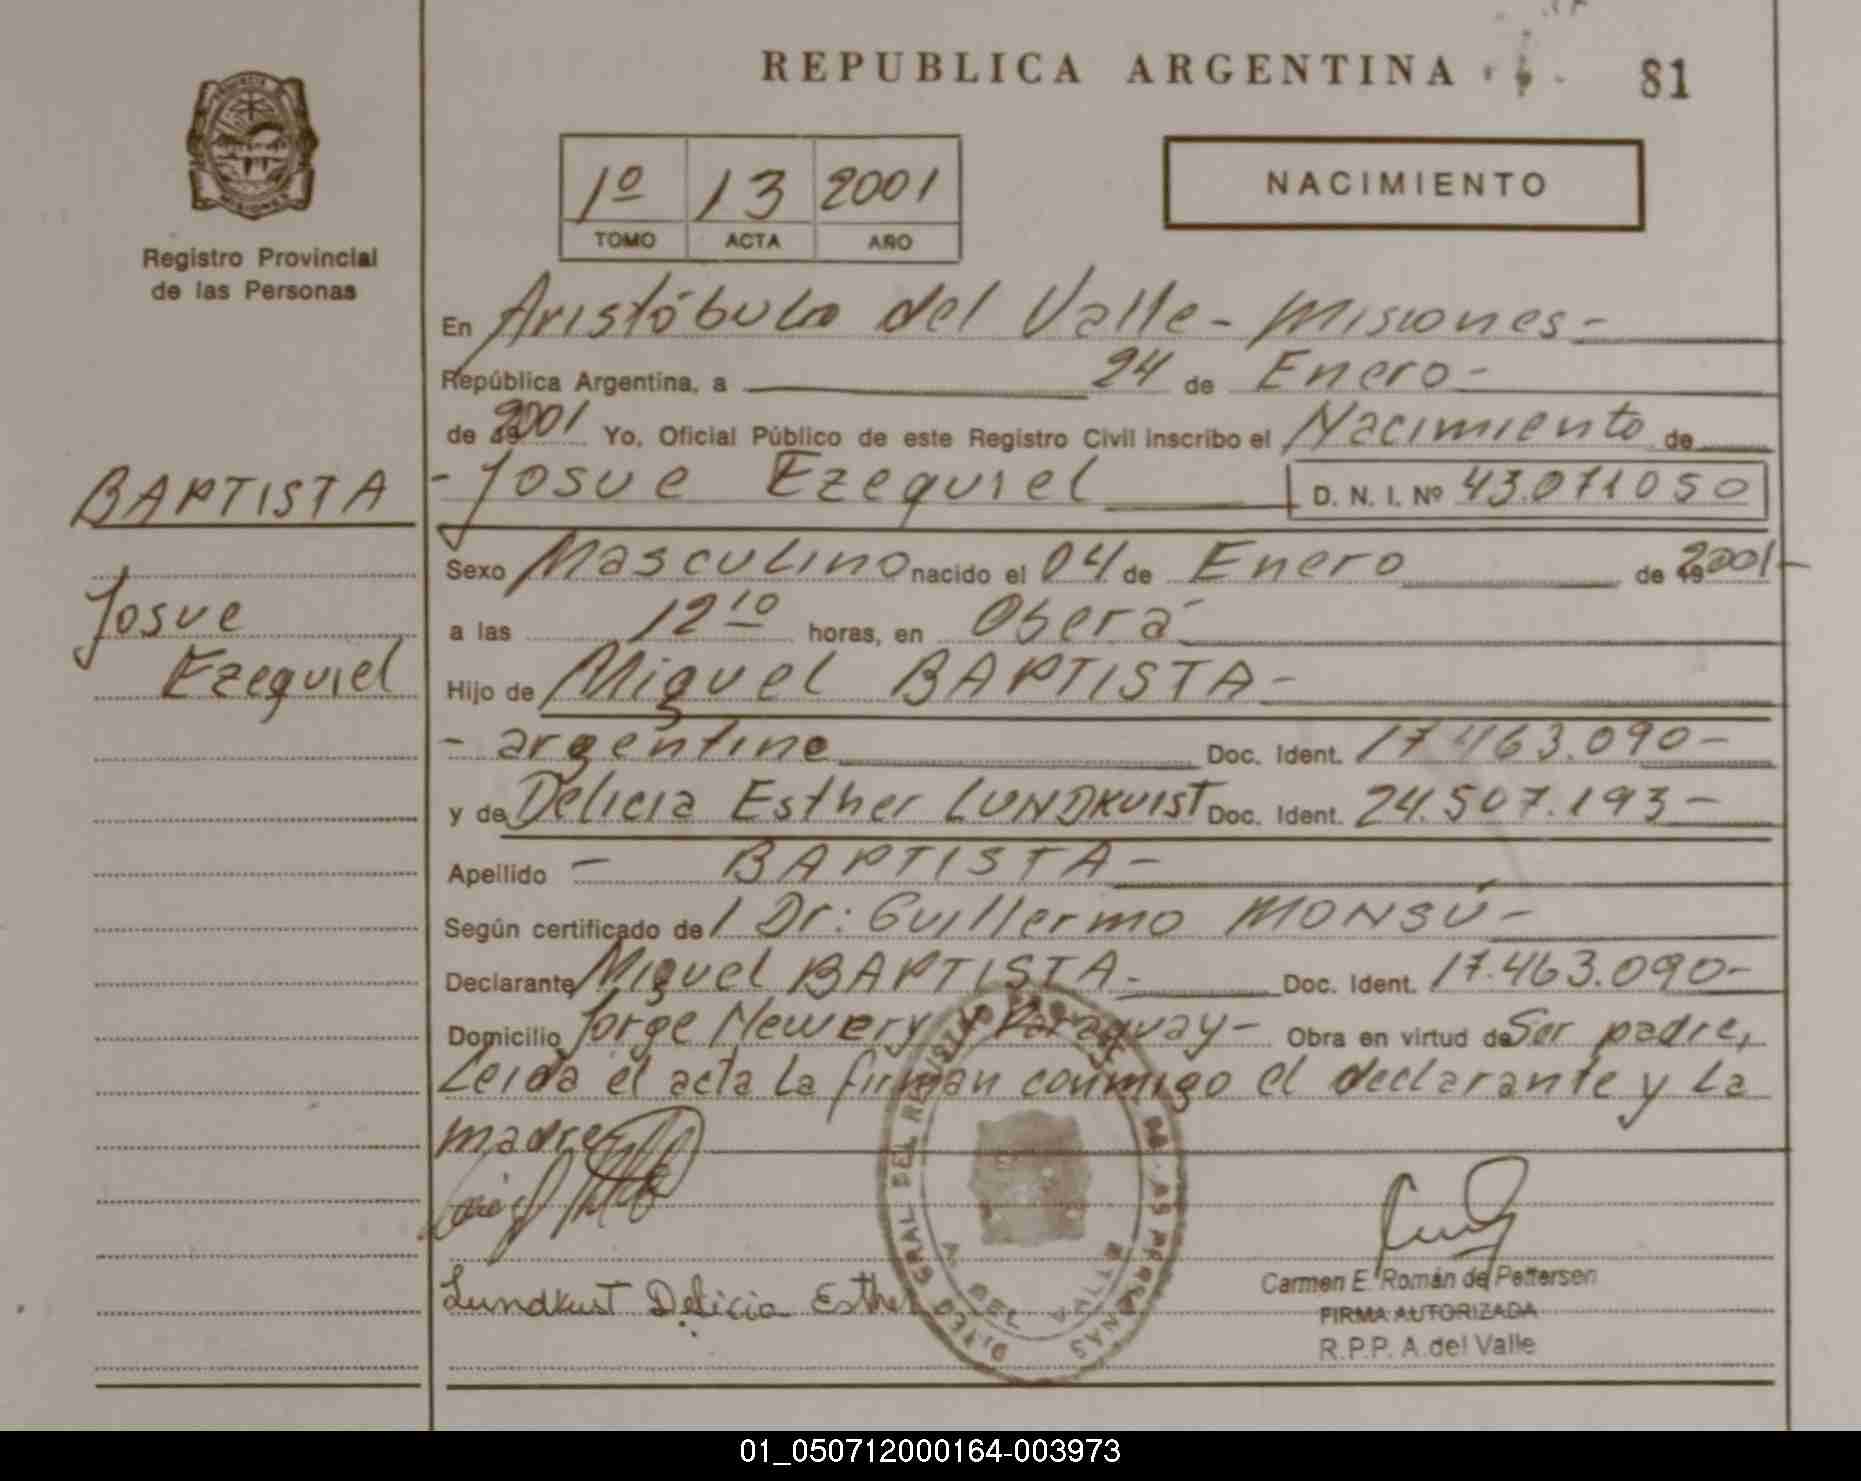 REPUBLICA ARGENTINA
81
1º 13 2001
TOMO ACTA AÑO
NACIMIENTO
Registro Provincial
de las Personas
En Aristóbulo del Valle - Misiones -
República Argentina, a 24 de Enero -
de 2001 Yo, Oficial Público de este Registro Civil inscribo el Nacimiento de
- Josue Ezequiel D. N. I. Nº 43.071050
BAPTISTA
Josue
Ezequiel
Sexo Masculino nacido el 04 de Enero de 2001 -
a las 12 10 horas, en Oberá
Hijo de Miguel BAPTISTA -
- argentino Doc. Ident. 17.463.090 -
y de Delicia Esther LUNDKUIST Doc. Ident. 24.507.193 -
Apellido - BAPTISTA -
Según certificado de / Dr: Guillermo MONSÚ -
Declarante Miguel BAPTISTA - Doc. Ident. 17.463.090 -
Domicilio Jorge Newery y Paraguay - Obra en virtud de Ser padre,
Leida el acta la firman conmigo el declarante y la
madre
Lundkust Delicia Esther
Carmen E. Román de Pettersen
FIRMA AUTORIZADA
R.P.P. A. del Valle
01_050712000164-003973